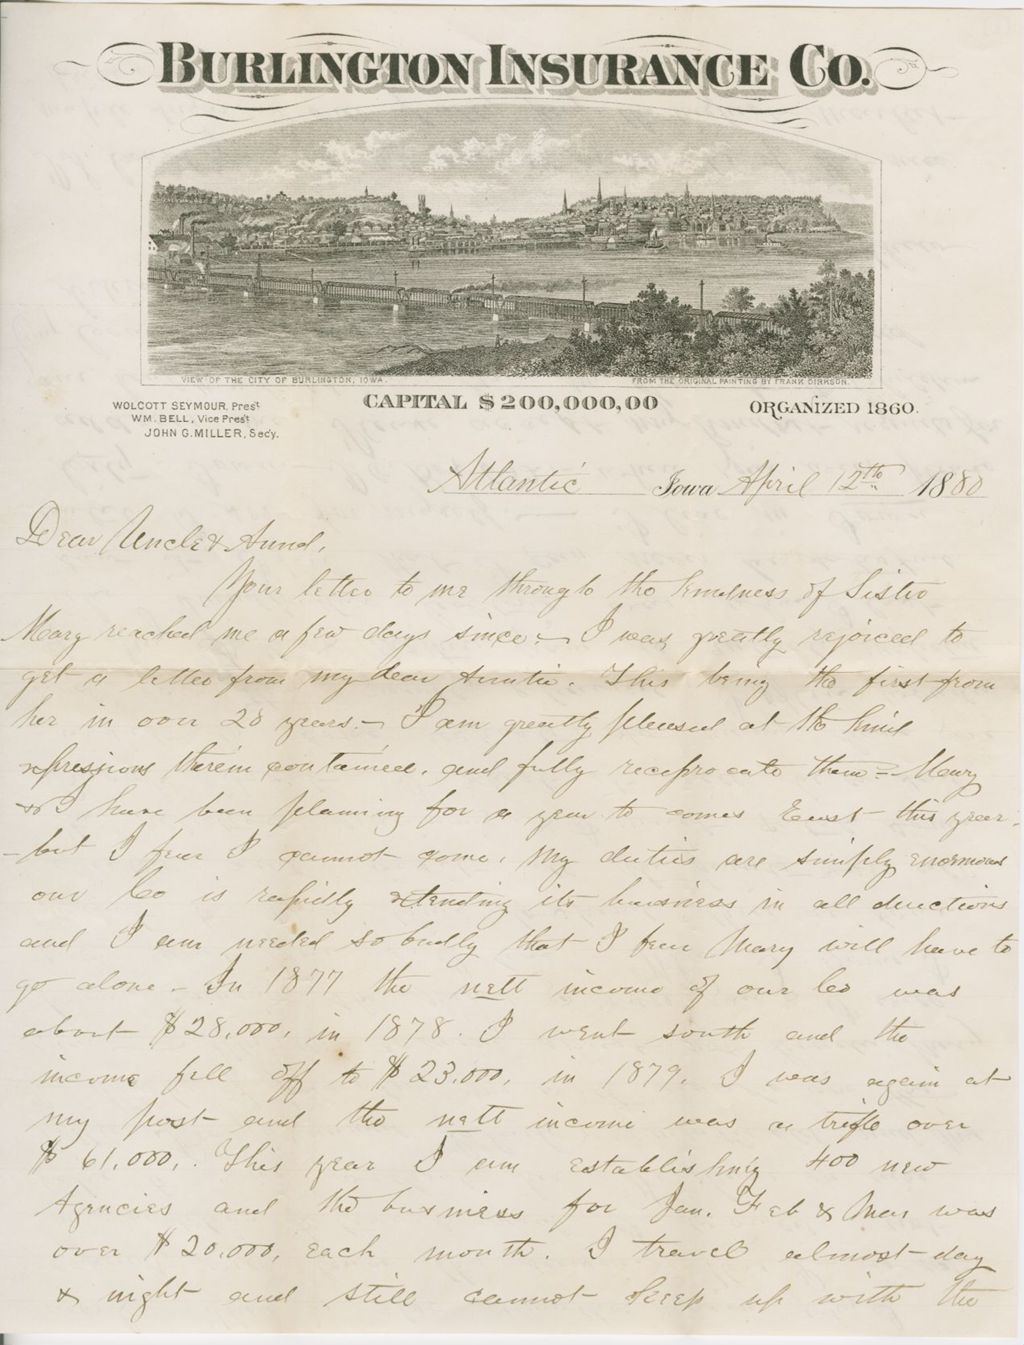 BURLINGTON INSURANCE CO.
VIEW OF THE CITY OF BURLINGTON, IOWA.
FROM THE ORIGINAL PAINTING BY FRANK DIRKSON.
WOLCOTT SEYMOUR, Prest
WM. BELL, Vice Prest
JOHN G. MILLER, Secy.
CAPITAL $200,000,00
ORGANIZED 1860.
Atlantic Iowa April 12th 1880
Dear Uncle & Aunt,
Your letter to me through the kindness of Sister
Mary reached me a few days since - I was greatly rejoiced to
get a letter from my dear Auntie. This being the first from
her in over 20 years. - I am greatly pleased at the kind
xpressions therein contained, and fully reciprocate them = Mary
& I have been planning for a year to come East this year.
- but I fear I cannot come. My duties are simply enormous
our Co is rapidly xtending its business in all directions
and I am needed so badly that I fear Mary will have to
go alone - In 1877 the nett income of our Co was
about $28,000, in 1878. I went south and the
income fell off to $23.000, in 1879. I was again at
my post and the nett income was a trifle over
$61,000,. This year I am establishing 400 new
Agencies and the business for Jan. Feb & Mar was
over $20.000, each month. I travel almost day
& night and still cannot keep up with the